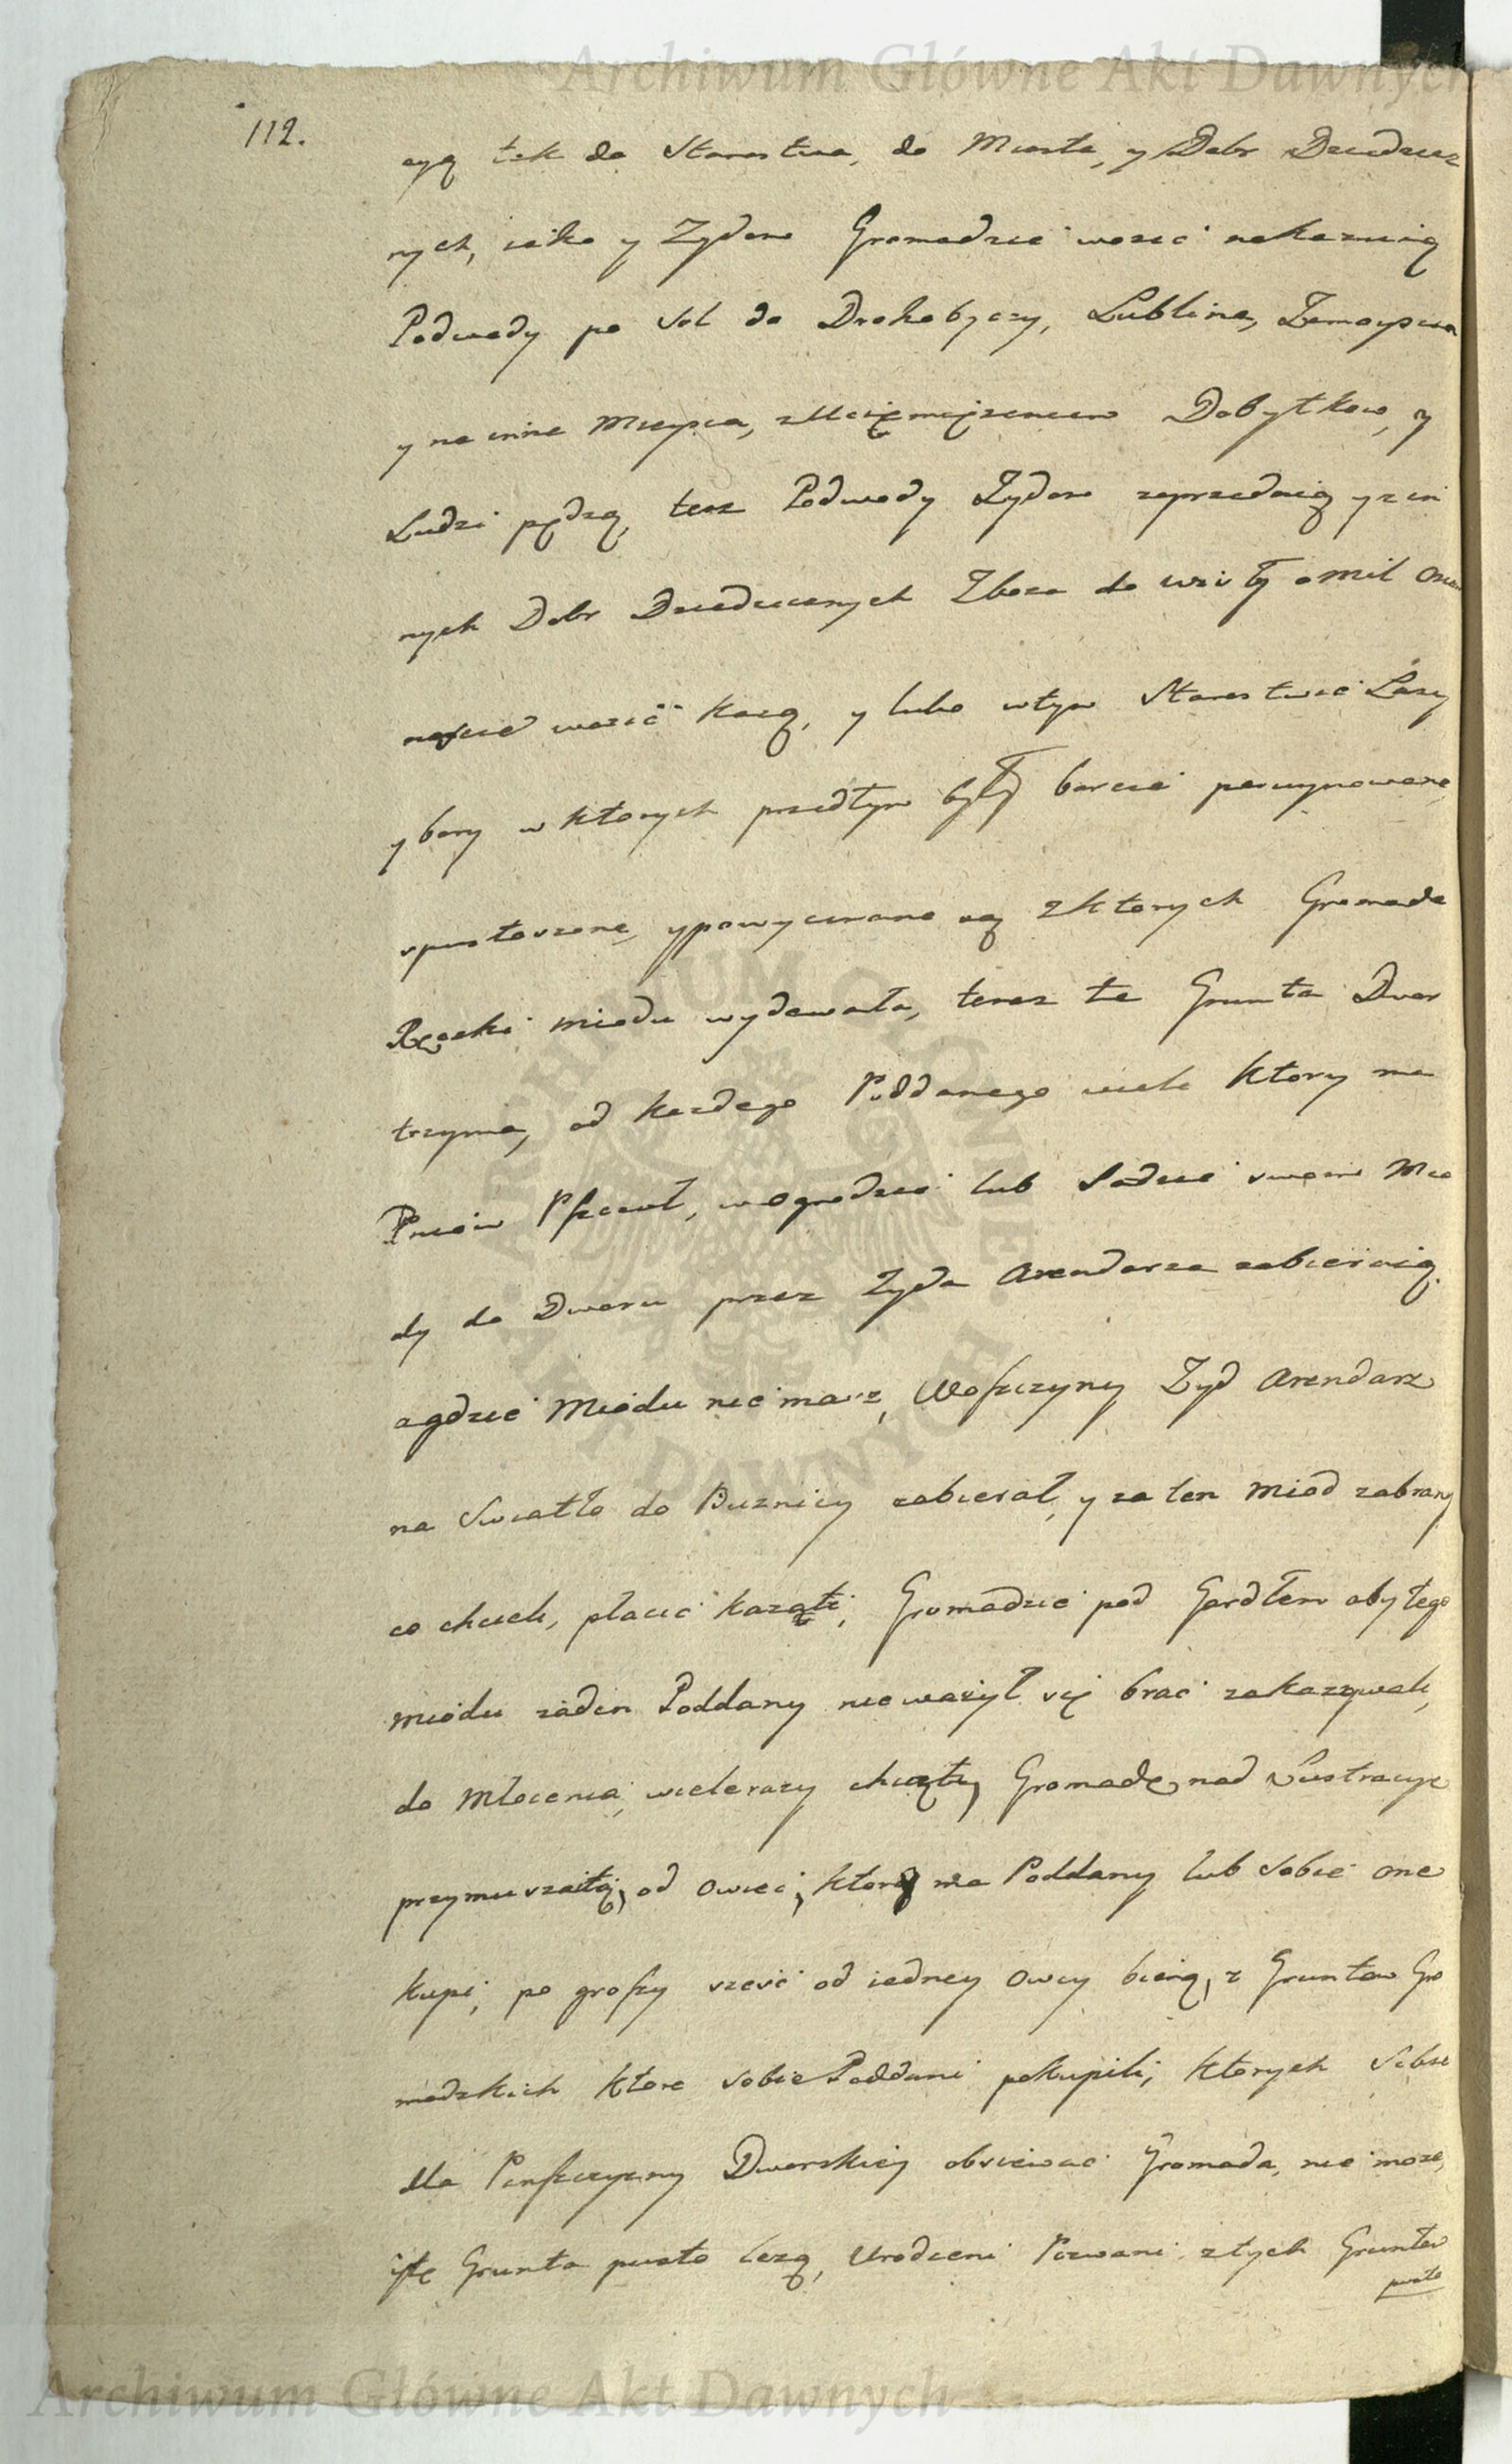 Archiwum Główne Akt Dawnych
112.
cyą tak do Starostwa, do Miasta, y Dobr Dziedzicz
nych, iako y Zydom Gromadzie wozić nakazuią
Podwody po Sol do Drohobyczy, Lublina, Zamoyscia
y na inne Mieysca, z Uciemięzeniem Dobytkow, y
Ludzi pędzą, tesz Podwody Zydom zaprzedaią y z in
nych Dobr Dziedzicznych Zboza do Wisły o mil
wozić kazą, y lubo w tym Starostwie Lasy
y bory w ktorych przedtym były barcie poruynowane,
spustoszone, y powycinane są z ktorych Gromada
Rączki miodu wydawała, teraz te Grunta Dwor
trzyma, od kazdego Poddanego wiele ktory ma
Pniow Pszczoł, w Ogrodzie lub Sadzie swoim Mio
dy do Dworu przez Zyda Arendarza zabieraią.
a gdzie Miodu nie masz, Woszczyny Zyd Arendarz
na Swiatło do Buznicy zabierał, y za ten Miod zabrany
co chcieli, płacić kazali, Gromadzie pod Gardłem aby tego
miodu zaden Poddany nie wazył się brać zakazywali,
do Młocenia, wielerazy chcąły, Gromadę nad Lustracyę
przymuszaią, od Owiec, ktorą ma Poddany lub sobie one
kupi, po groszy sześć od iedney Owcy biorą, z Gruntow Gro
madzkich ktore sobie Poddani pokupili, ktorych sobie
dla Pańszczyzny Dworskiey obsiewać Gromada, nie moze,
y te Grunta pusto lezą, Urodzeni Pozwani z tych Gruntow
pusto
Archiwum Główne Akt Dawnych
ARCHIWUM GŁÓWNE AKT DAWNYCH